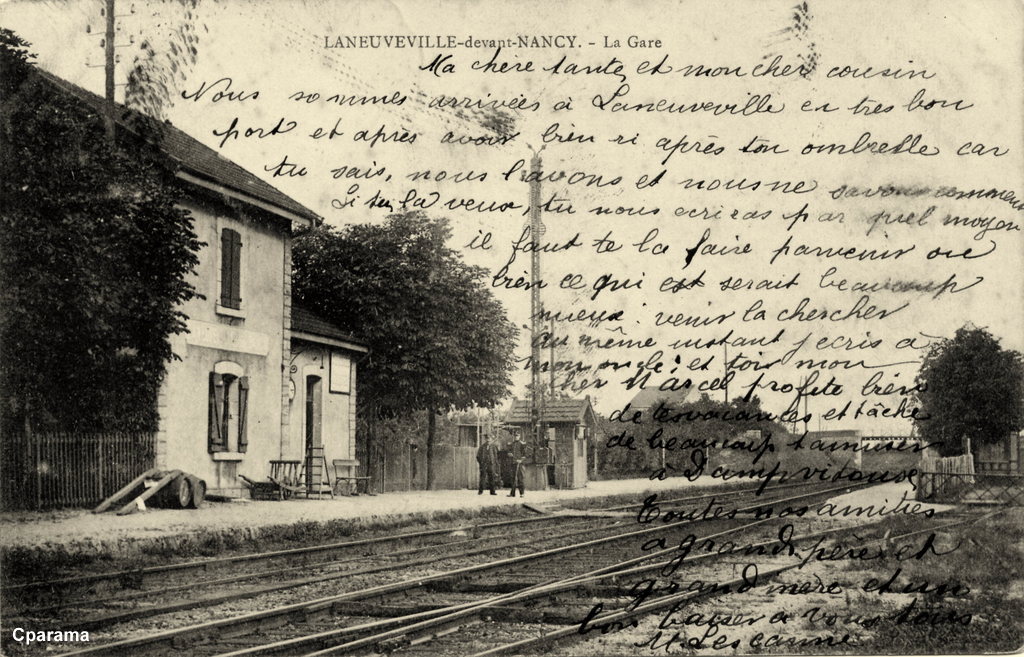 LANEUVEVILLE-devant-NANCY. - La Gare
Ma chère tante, et mon cher cousin
Nous sommes arrivées à Laneuveville en très bon
port et après avoir bien ri après ton ombrelle car
tu sais, nous l'avons et nous ne savons comment
Si tu la veux, tu nous ecriras par quel moyen
il faut te la faire parvenir ou
bien ce qui est serait beaucoup
mieux: venir la chercher
au même instant j'ecris à
mon oncle: et toi mon
cher Marcel profite bien
de tes vacances et tâche
de beaucoup t'amuser
à Dampvitoux
Toutes nos amitiés
a grand père et
grand mère et un
bon baiser a vous tous
M Lescanne
Cparama